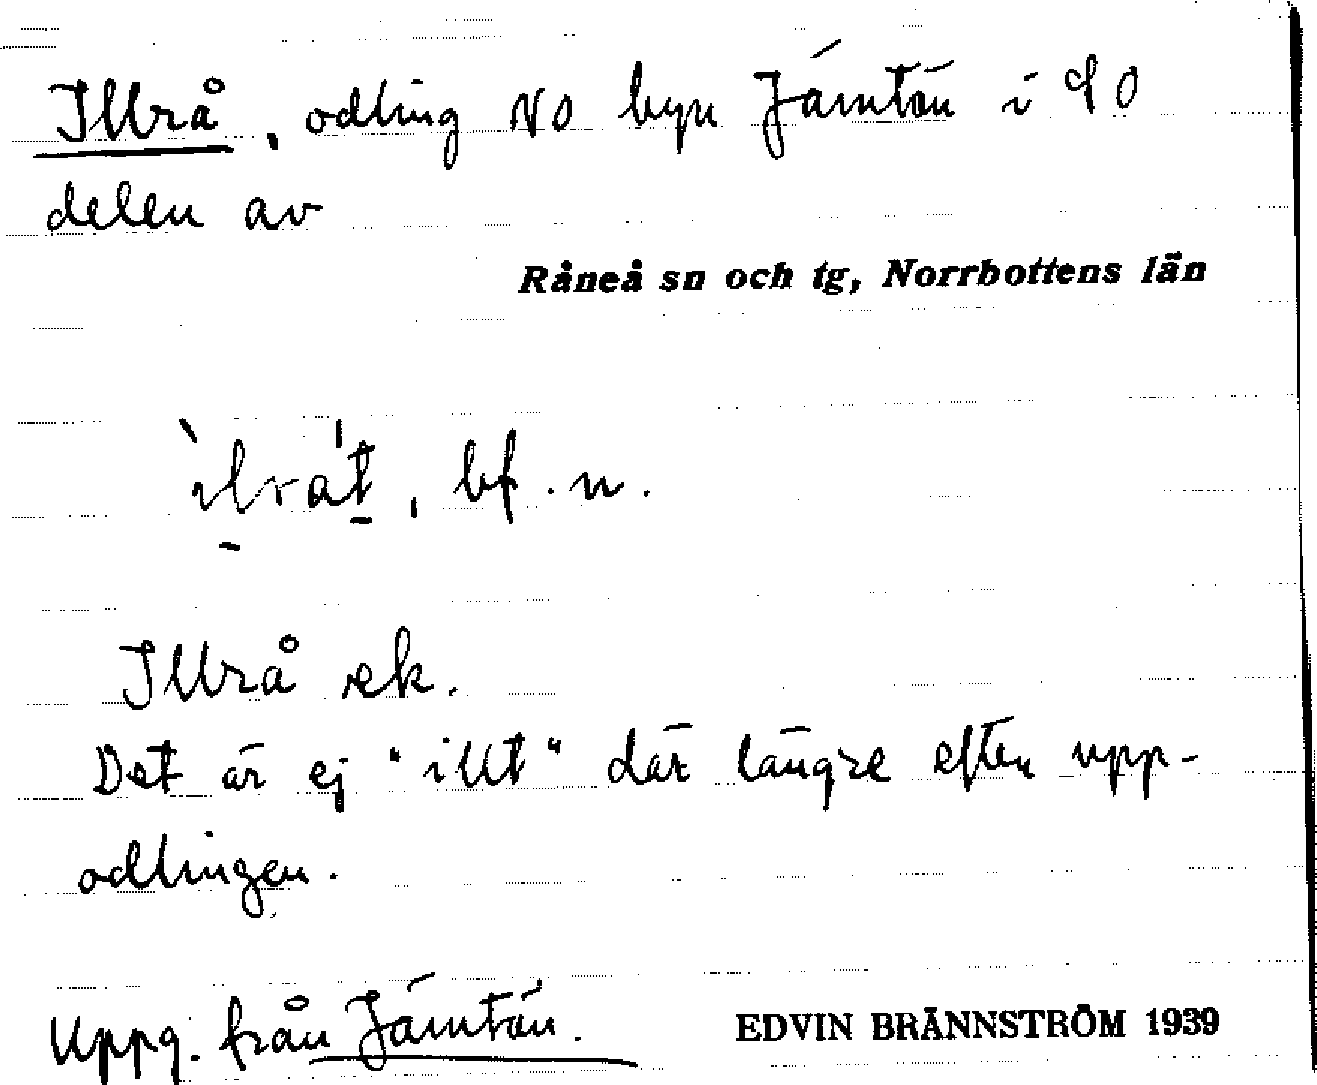 Illrå, odling NO byn Jämtön i SO
delen av
Råneå sn och tg, Norrbottens län
bf. n.
Illrå ek.
Det är ej "illt" där längre efter upp-
odlingen.
Uppg. från Jämtön.
EDVIN BRÄNNSTRÖM 1939